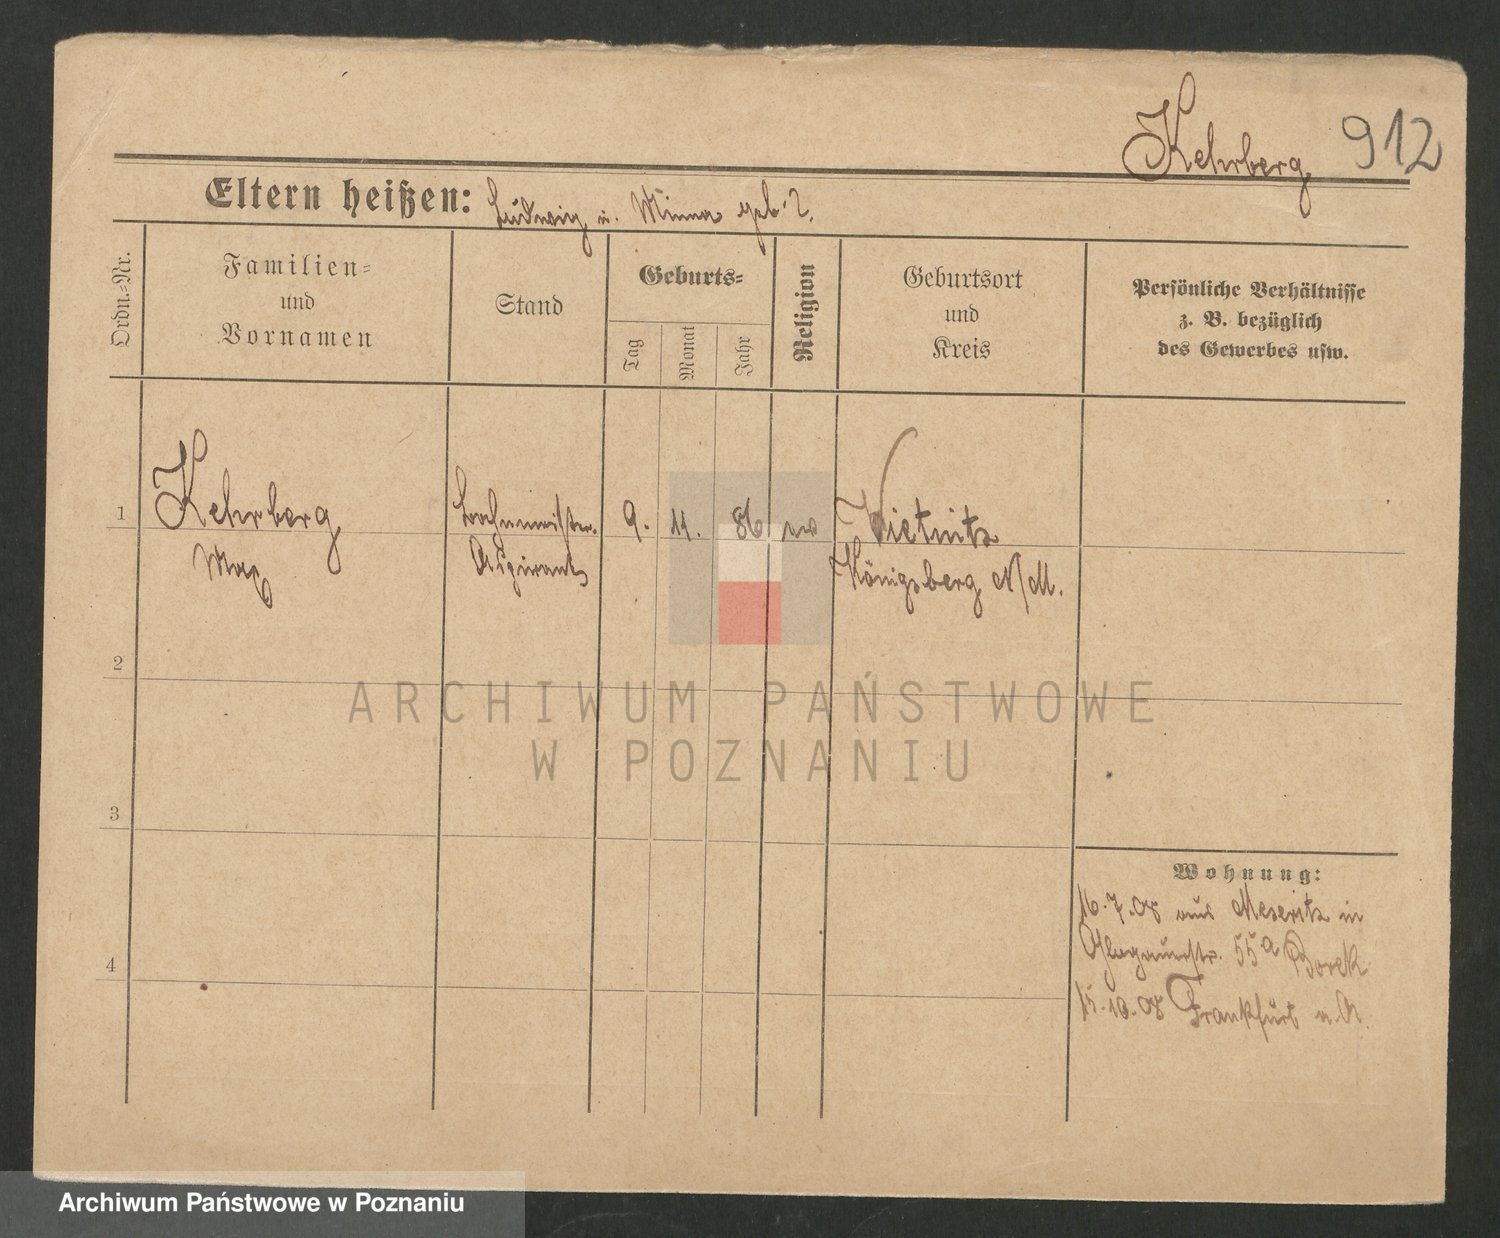 Kehrberg 912
Eltern heißen: Ludwig u. Minna geb. ?.
Ordn.-Nr.
Familien-
und
Vornamen
Stand
Geburts-
Tag
Monat
Jahr
Religion
Geburtsort
und
Kreis
Persönliche Verhältnisse
z. B. bezüglich
des Gewerbes usw.
1 Kehrberg 9. 11. 86 ev Vietnitz
Max Aspirant Königsberg N/M.
2
3
4
Wohnung:
16.7.08 aus Meseritz in
Glogauerstr. 55a Borek
15.10.08 Frankfurt a.O.
ARCHIWUM PAŃSTWOWE
W POZNANIU
Archiwum Państwowe w Poznaniu